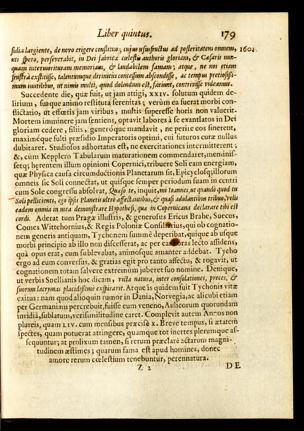 Liber quintus. 179
sidia largiente, de novo erigere conſtituo; cujus uſusfructus ad poſteritatem omnem,
uti ſpero, perſervetur, in Dei fabrica cælestis authoris gloriam, & Cæſaris nun-
quam intermorituram memoriam, & laudabilem famam; atque, ne nos etiam
fruſtra extitiſſe,
inutiliter, ut nimis multi, quod dolendum est, faciunt,
1601.
Succedente die, quæ fuit, ut jam attigi, XXIV. ſolutum quidem de-
lirium, ſuaque animo reſtituta ſerenitas; verùm ea fuerat morbi con-
ditio, ut effœtis jam viribus, multis ſupereſſe horis non valeret.
Mortem imminere jam ſentiens, optavit labores à ſe exantlatos in Dei
gloriam cedere, filiis, generóque mandavit, ne perire eos ſinerent,
maximéque fulti præſidio Imperatoris optimi, cui futuros curæ nullus
dubitaret. Studioſos adhortatus eſt, ne exercitationes intermitterent;
&, cùm Kepplero Tabularum maturationem commendaret,
tribuere Soli eam energiam,
quâ Phyſica cauſa circumductionis Planetarum ſit, Epicycloſque illorum
omneis ſic Soli connectat, ut quiſque ſemper periodum ſuam in centri
cum Sole congreſſu abſolvat, Quæſo te, inquit, mi Ioannes, ut quando quod tu
Soli pellicienti, ego ipſis Planetis ultrò affectantibus, & quaſi adulantibus tribuo, velis
eadem omnia in mea demonſtrare Hypotheſi, quæ in Copernicana declarare tibi eſt
cordi. Aderat tum Pragæ illuſtris, & generoſus Ericus Brahe, Suecus,
Comes Wittehornius, & Regis Poloniæ Conſiliarius, qui ob cognatio-
nem generis antiquam, Tychonem ſummè deperibat, quique ab uſque
morbi principio ab illo non diſceſſerat, ac per lecto aſſidens,
quà opus erat, cum ſublevabat, animoſque amanter addebat. Tycho
ergo ad eum converſus, & gratias egit pro tanto affectu, & rogavit, ut
cognationem totam ſalvere extremùm juberet ſuo nomine. Denique,
ut verbis Snellianis hoc dicam, rità natura, inter conſolationes, preces, &
ſuorum lacrymas placidiſſimè exſpiravit. Atque is quidem fuit Tychonis vitæ
exitus: nam quod aliquòd rumor in Dania, Norvegia, ac alicubi etiam
per Germaniam percrebuit, fuiſſe eum veneno, Aulicorum quorundam
invidiâ, ſublatum, veriſimilitudine caret. Complevit autem Annos non
plureis, quàm LIV. cum menſibus præcisè X. Breve tempus, ſi ætatem
ſpectes, quam poterat attingere, quamque tot inertes plerumque aſ-
ſequuntur; at prolixum tamen, ſi rerum præclarè actarum magni-
tudinem æſtimes; quarum fama eſt apud homines, donec
amore rerum cœleſtium tenebuntur, perennatura.
Z 2 DE